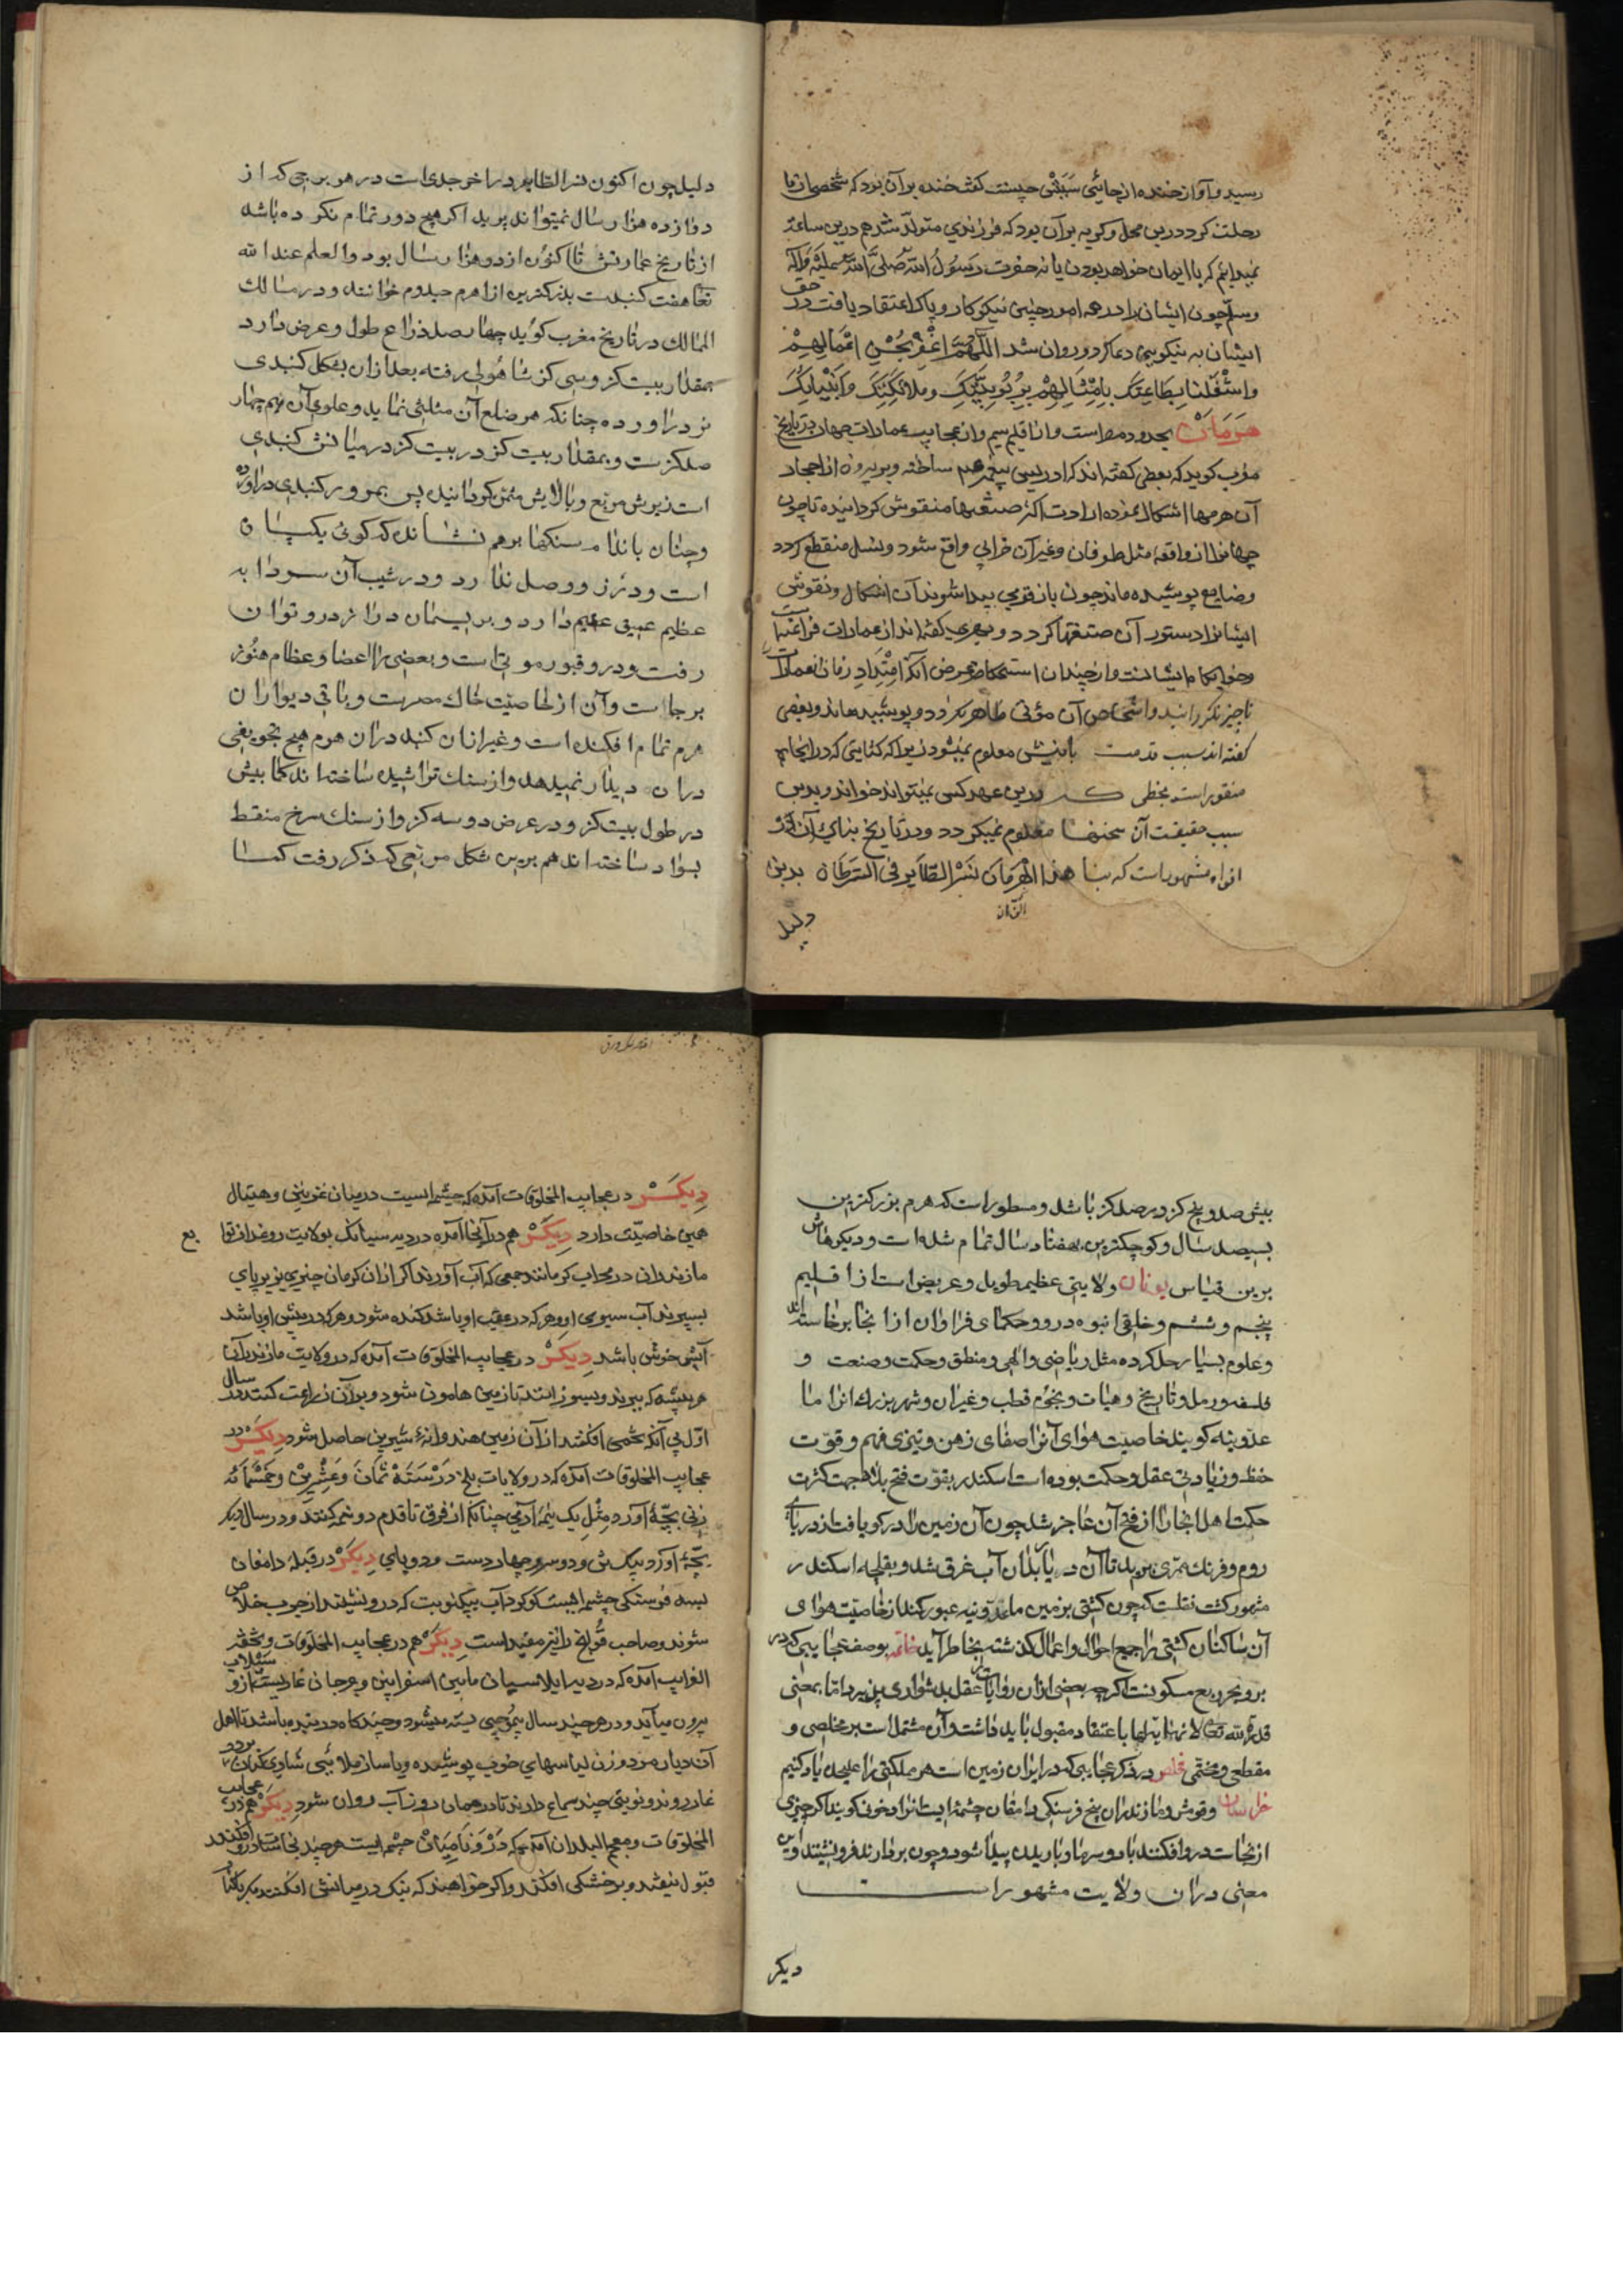 رسید و آواز خنده از جائی سببش چیست کفت خنده بر آن بود که شخصی از ما
رحلت کرد درین محل و کریه بر آن بود که فرزندی متولد شد هم درین ساعة
نمیدانم که با ایمان خواهد بودن یا نه حضرت رسول الله صلی الله علیه و آله
وسلم چون ایشان را در همه امور چنین نیکوکار و پاک اعتقاد یافت در حق
ایشان به نیکویی دعا کرد و روان شد اللهم اغفر بحسن اعمالهم
واشغلنا بطاعتک بامثالهم بربوبیتک وملائکتک وانبیائک
هرمان بحدود مصر است و از اقلیم سیم و از عجایب عمارات جهان در تاریخ
مغرب کوید که بعضی کفته اند که ادریس پیغمبر عم ساخته و بر بیرون از احجار
آن هرمها اشکال نموده ادات اکثر صنعتها منقوش کردانیده تا چون
جهانرا از واقعه مثل طوفان و غیر آن خرابی واقع شود و نسل منقطع کردد
و ضایع پوشیده ماند چون باز قومی پیدا شوند آن اشکال و نقوش
ایشانرا دستور آن صنعتها کردد و بعضی کفته اند از عمارات فراعنه است
وخوابکاه ایشانست و از چندان استحکام غرض آنکه امتداد زمان آن عمارات
ناچیز نکرداند و اشخاص آن موتی ظاهر نکردد و پوشیده ماند و بعضی
کفته اند سبب قدمت بانیش معلوم نمیشود زیرا که کتابتی که در انجایها
منقور است بخطی که درین عهد کسی نمیتواند خواند و بدین
سبب حقیقت آن سخنها معلوم نمیکردد و در تاریخ بنای آن در
افواه مشهور است که بنا هذا الهرمان نسر الطایر فی السرطان بدین
دلیل
دلیل چون اکنون نسر الطایر در اخر جدی است در هر برجی که از
دوازده هزار سال نمیتواند برید اکر هیچ دور تمام نکرده باشد
از تاریخ عمارتش تا اکنون از دو هزار سال بود والعلم عند الله
تعا هفت کنبدست بزرکترین از اهرم میدوم خوانند و در مسالک
الممالک در تاریخ مغرب کوید چهارصد ذراع طول و عرض دارد
بمقدار بیست کز و سی کز شاهولی رفته بعد ازان بشکل کنبدی
بر دراورده چنانکه هر ضلع آن مثلثی نماید و علوی آن هم چهار
صد کزست و بمقدار بیست کز در بیست کز در میانش کنبدی
است زیرش مربع و بالایش مثمن کردانیده پس بمرور کنبدی دراورده
وچنان باندام سنکها برهم نشانده که کوئی یکسان
است و درز و وصل ندارد و در شیب آن سردابه
عظیم عمیق عظیم دارد و بریسمان دراز درو توان
رفت و درو قبور موتی است و بعضی را اعضا و عظام هنوز
برجاست و آن از خاصیت خاک مصرست و باقی دیوار آن
هرم تمام افکنده است و غیر ازان کنبد دران هرم هیچ تجویفی
دران دیدار نمیدهد و از سنک تراشیده ساخته اند کما بیش
در طول بیست کز و در عرض دو سه کز و از سنک سرخ منقط
بسواد ساخته اند هم برین شکل مربعی که ذکر رفت کما
بیش صد و پنج کز در صد کز باشد و مسطور است که هرم بزرکترین
بسیصد سال و کوچکترین بهفتاد سال تمام شده است و دیکرهاش
برین قیاس یونان ولایتی عظیم طویل و عریض است از اقلیم
پنجم و ششم و خلقی انبوه درو و حکمای فراوان از انجا برخاسته اند
و علوم بسیار حل کرده مثل ریاضی و الهی و منطق و حکمت و صنعت و
فلسفه و رمل و تاریخ و هیات و نجوم قطب و غیران و شهر بزرک انرا ما
عدونیه کویند خاصیت هوای آنرا صفای ذهن و تیزی فهم و قوت
حفظ و زیادتی عقل و حکمت بوده است اسکندر بقوت فتح بلاد جهت کثرت
حکمت اهل انجا را از فتح آن عاجز شد چون آن زمین را در کو یافت از دریای
روم و فرنک ممری برید تا آن دیار بدان آب غرق شد و بقلچه اسکندر
مشهور کشت نقلست که چون کشتی بزمین ماعدونیه عبور کند از خاصیت هوای
آن ساکنان کشتی را جمیع احوال و اعمال کذشته بخاطر آید خاتمه بوصف عجایبی که در
بر و بحر ربع مسکونست اکرچه بعضی ازان روایات عقل بدشواری پذیرد اما بمعنی
قدرة لله تعالی لا نهایة لها باعتقاد مقبول باید داشت و آن مشتمل است بر مخلصی و
مقطعی و مختمی مخلص در ذکر عجایبی که در ایران زمین است هر مملکتی را علیحده یاد کنیم
خراسان و قومش و مازندران پنج فرسنکی دامغان چشمه ایست انرا باد خوانی کویند اکر چیزی
از نجاست درو افکنند باد و سرما و باریدن پیدا شود و چون بردارند فرو نشیند و این
معنی دران ولایت مشهور است
دیکر
دیکر در عجایب المخلوقات آمده که چشمه ایست در میان غزنین و هیتال
همین خاصیت دارد دیکر هم درانجا آمده در دیه سیاتک بولایت روغد از توابع
مازندرانی در محراب کرمانند جمعی که آب آورند اکر ازان کرمان چیزی بزیر پای
بسپرند آب سبوی او و هر که در عقب او باشد کنده شود و هر که در پیش او باشد
آبش خوش باشد دیکر در عجایب المخلوقات آمده که در ولایت مازندران
هر بیشه که ببرند و بسوزانند تا زمین هامون شود و بر آن زراعت کنند در سال
اول بی آنکه تخمی افکنند از آن زمین هندوانهٔ شیرین حاصل شود دیکر در
عجایب المخلوقات آمده که در ولایات بلخ در سنة ثمان وعشرین وخمسمائه
زنی بچهٔ آورد مثل یک نیمه آدمی چنانکه از فرق تا قدم دو نیمه کنند و در سال دیکر
بچهٔ آورد بیک تن و دو سر و چهار دست و دو پای دیکر در قبله دامغان
بسه فرسنکی چشمه ایست کوکرد آب بیکنوبت که درو نشینند از جرب خلاص
شوند و صاحب قولنج را نیز مفید است دیکر هم در عجایب المخلوقات و تحفة
الغرایب آمده که در دیه ایلاسیان مابین اسفراین و جرجان غاریست از و سیلابی
بیرون میآید و در هر چند سال بموجبی بسته میشود و چند کاه در بنده باشد تا اهل
آن دیار مرد و زن لباسهای خوب پوشیده و با ساز ملاهی شادی کنان بر در
غار روند و نوبتی چند سماع دارند تا در همان روز آب روان شود دیکر هم در عجایب
المخلوقات و معجم البلدان آمده که در و نامیان چشمه ایست هر چند نجاسات درو افکنند
قبول نیفتد و بر خشکی افکند و اکر خواهند که نیک در میانش افکنند